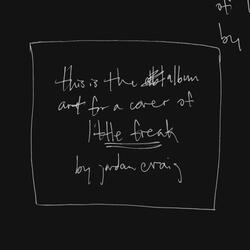 of
by
this is the album
art for a cover of
little freak
by jordan craig